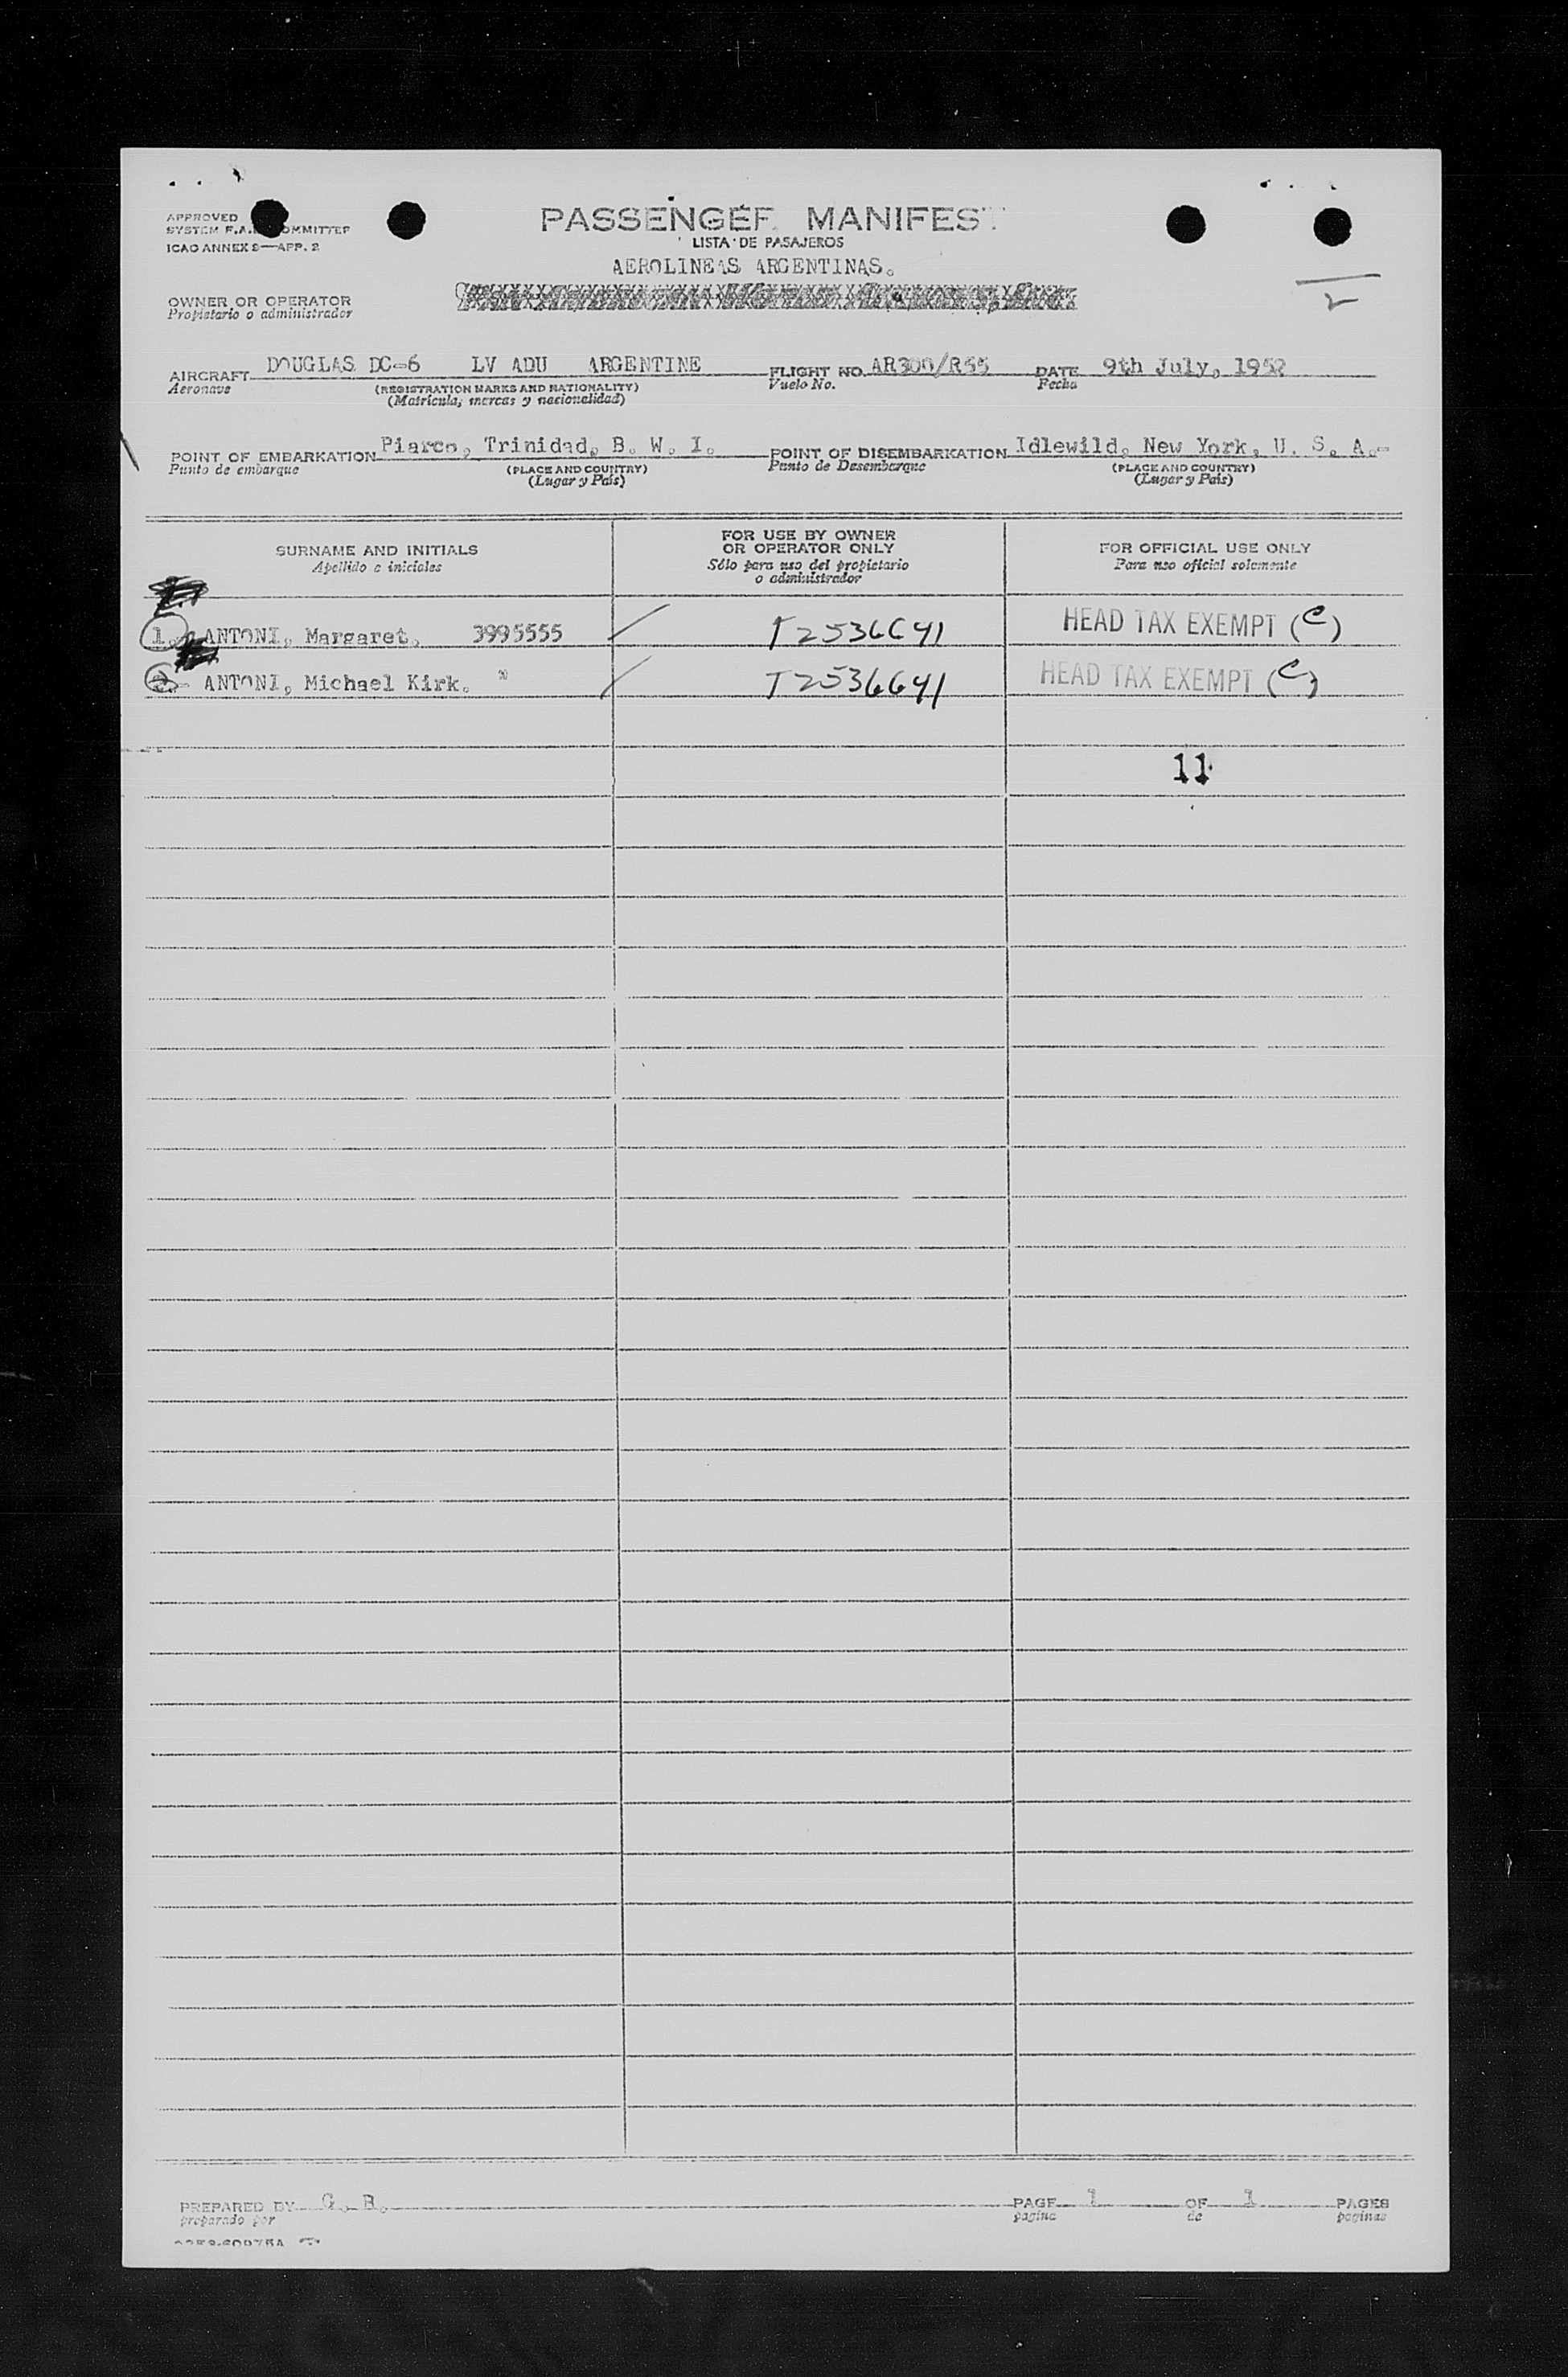 PASSENGER MANIFEST
LISTA DE PASAJEROS
APPROVED
SYSTEM COMMITTEE
ICAO ANNEX 9—APP. 2
AEROLINEAS ARGENTINAS.
OWNER OR OPERATOR
Propietario o administrador
AIRCRAFT DOUGLAS DC-6 LV ADU ARGENTINE FLIGHT NO. AR300/R55 DATE 9th July, 1952
Aeronave (REGISTRATION MARKS AND NATIONALITY) Vuelo No. Fecha
(Matricula, marcas y nacionalidad)
POINT OF EMBARKATION Piarco, Trinidad, B. W. I. POINT OF DISEMBARKATION Idlewild, New York, U. S. A.-
Punto de embarque (PLACE AND COUNTRY) Punto de Desembarque (PLACE AND COUNTRY)
(Lugar y País) (Lugar y País)
SURNAME AND INITIALS
Apellido e iniciales
FOR USE BY OWNER
OR OPERATOR ONLY
Sólo para uso del propietario
o administrador
FOR OFFICIAL USE ONLY
Para uso oficial solamente
1. ANTONI, Margaret. 3995555 T2536641 HEAD TAX EXEMPT (C)
2. ANTONI, Michael Kirk. " T2536641 HEAD TAX EXEMPT (C)
11
PREPARED BY G. B. PAGE 1 OF 1 PAGES
preparado por pagina de paginas